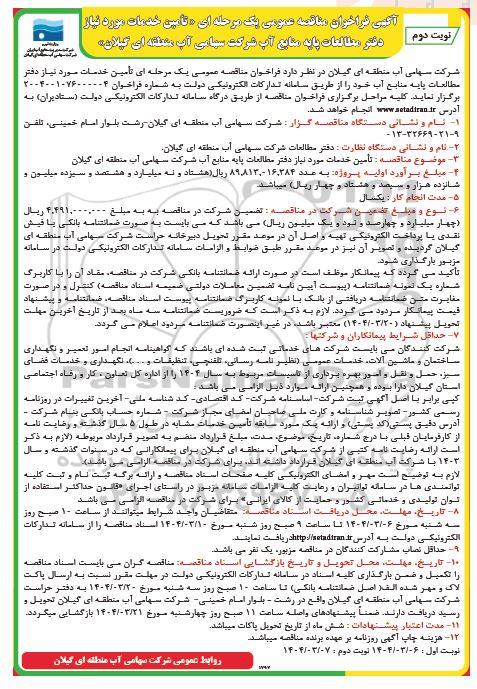 آگهی فراخوان مناقصه عمومی یک مرحله ای «تأمین خدمات مورد نیاز
دفتر مطالعات پایه منابع آب شرکت سهامی آب منطقه ای گیلان»
نوبت دوم
شرکت سهامی آب منطقه ای گیلان در نظر دارد فراخوان مناقصه عمومی یک مرحله ای تأمین خدمات مورد نیاز دفتر
مطالعات پایه منابع آب خود را از طریق سامانه تدارکات الکترونیکی دولت به شماره فراخوان
برگزار نماید. کلیه مراحل برگزاری فراخوان مناقصه از طریق درگاه سامانه تدارکات الکترونیکی دولت (ستادیران) به
آدرس www.setadiran.ir انجام خواهد شد.
۱- نام و نشانی دستگاه مناقصه گزار : شرکت سهامی آب منطقه ای گیلان-رشت بلوار امام خمینی، تلفن
۹-۳۲۶۶۹۰۲۱-۰۱۳
۲- نام و نشانی دستگاه نظارت : دفتر مطالعات شرکت سهامی آب منطقه ای گیلان.
۳- موضوع مناقصه : تأمین خدمات مورد نیاز دفتر مطالعات پایه منابع آب شرکت سهامی آب منطقه ای گیلان
۴- مبلغ برآورد اولیه پروژه: به عدد ۸۹,۸۱۳,۰۱۶,۳۸۴ ریال(هشتاد و نه میلیارد و هشتصد و سیزده میلیون و
شانزده هزار و سیصد و هشتاد و چهار ریال) میباشد.
۵- مدت انجام کار : یکسال
۶- نوع و مبلغ تضمین شرکت در مناقصه : تضمین شرکت در مناقصه به به مبلغ ۴,۴۹۱,۰۰۰,۰۰۰ ریال
(چهار میلیارد و چهارصد و نود و یک میلیون ریال) می باشد که می بایست به صورت ضمانتنامه بانکی یا فیش
نقدی یا پرداخت الکترونیکی تهیه و اصل آن در موعد مقرر تحویل دبیرخانه حراست شرکت سهامی آب منطقه ای
گیلان گردیده و تصویر آن نیز در موعد مقرر طبق ضوابط و الزامات سامانه تدارکات الکترونیکی دولت در سامانه
مزبور بارگذاری شود.
تأکید می گردد که پیمانکار موظف است در صورت ارائه ضمانتنامه بانکی شرکت در مناقصه، مفاد آن را با کاربرگ
شماره یک نمونه ضمانتنامه (پیوست آیین نامه تضمین معاملات دولتی ضمیمه اسناد مناقصه) کنترل و در صورت
مغایرت متن ضمانتنامه دریافتی از بانک با نمونه کاربرگ ضمانتنامه پیوست اسناد مناقصه، ضمانتنامه و پیشنهاد
قیمت پیمانکار مردود می گردد. لازم به ذکر است که ضروریست ضمانتنامه سه ماه بعد از تاریخ آخرین مهلت
تحویل پیشنهاد (۱۴۰۴/۰۳/۲۰) معتبر باشد، در غیر اینصورت ضمانتنامه مردود اعلام می گردد.
۷- حداقل شرایط پیمانکاران و شرکتها :
شرکت کنندگان می بایست شرکت های خدماتی ثبت شده ای باشند که گواهینامه انجام امور تعمیر و نگهداری
ساختمان و ماشین آلات، خدمات عمومی (نظیر نامه رسانی، تلفنچی، تنظیفات و ...)، نگهداری و خدمات فضای
سبز، حمل و نقل و امور بهره برداری از تاسیسات مربوط به سال ۱۴۰۴ را از اداره کل تعاون ، کار و رفاه اجتماعی
استان گیلان دارا بوده و همچنین ارائه موارد ذیل الزامی می باشد :
کپی برابر با اصل آگهی ثبت شرکت- اساسنامه شرکت- کد اقتصادی- کد شناسه ملی- آخرین تغییرات در روزنامه
رسمی کشور- تصویر شناسنامه و کارت ملی صاحبان امضای مجاز شرکت - شماره حساب بانکی بنام شرکت -
آدرس دقیق پستی(کد پستی)، و ارائه یک مورد سابقه تأمین خدمات مشابه در طول ۵ سال گذشته و رضایت نامه
از کارفرمایان قبلی با درج شماره، تاریخ، موضوع، مدت، مبلغ قرارداد منضم به تصویر قرارداد مربوطه (لازم به ذکر
است ارائه رضایت نامه کتبی از شرکت سهامی آب منطقه ای گیلان برای پیمانکارانی که در سنوات گذشته و سال
۱۴۰۳ با شرکت آب منطقه ای گیلان قرارداد داشته اند، برای شرکت در مناقصه الزامی می باشد)
لازم به توضیح است مهر و امضای الکترونیکی کلیه صفحات اسناد مناقصه و ارائه برگه ثبت نام و ثبت کلیه
توانمندی ها در سامانه توانیران و رعایت کلیه الزامات سامانه مزبور در راستای اجرای «قانون حداکثر استفاده از
توان تولیدی و خدماتی کشور و حمایت از کالای ایرانی» برای شرکت در مناقصه الزامی می باشد
۸- تاریخ، مهلت، محل دریافت اسناد مناقصه: متقاضیان واجد شرایط میتوانند از ساعت ۱۰ صبح روز
سه شنبه مورخ ۱۴۰۴/۰۳/۰۶ تا ساعت ۹ صبح روز شنبه مورخ ۱۴۰۴/۰۳/۱۰ اسناد مناقصه را از سامانه تدارکات
الکترونیکی دولت به آدرس http://setadiran.ir دریافت نمایند.
۹- حداقل نصاب مشارکت کنندگان در مناقصه مزبور، یک نفر می باشد.
۱۰- تاریخ، مهلت، محل تحویل و تاریخ بازگشایی اسناد مناقصه: مناقصه گران می بایست اسناد مناقصه
را تکمیل و ضمن بارگذاری کلیه اسناد در سامانه تدارکات الکترونیکی دولت در مهلت مقرر نسبت به ارسال پاکت
لاک و مهر شده الف( اصل ضمانتنامه بانکی) تا ساعت ۱۰ صبح روز سه شنبه مورخ ۱۴۰۴/۰۳/۲۰ به دفتر حراست
شرکت سهامی آب منطقه ای گیلان واقع در رشت - بلوار امام خمینی- شرکت سهامی آب منطقه ای گیلان تحویل و
رسید دریافت دارند. ضمناً پیشنهادهای واصله ساعت ۱۱ صبح روز چهارشنبه مورخ ۱۴۰۴/۰۳/۲۱ بازگشایی میگردد.
۱۱- مدت اعتبار پیشنهادات : شش ماه از تاریخ تحویل پاکات میباشد.
۱۲- هزینه چاپ آگهی روزنامه بر عهده برنده مناقصه میباشد.
نوبت اول : ۱۴۰۴/۰۳/۰۶ نوبت دوم : ۱۴۰۴/۰۳/۰۷
روابط عمومی شرکت سهامی آب منطقه ای گیلان